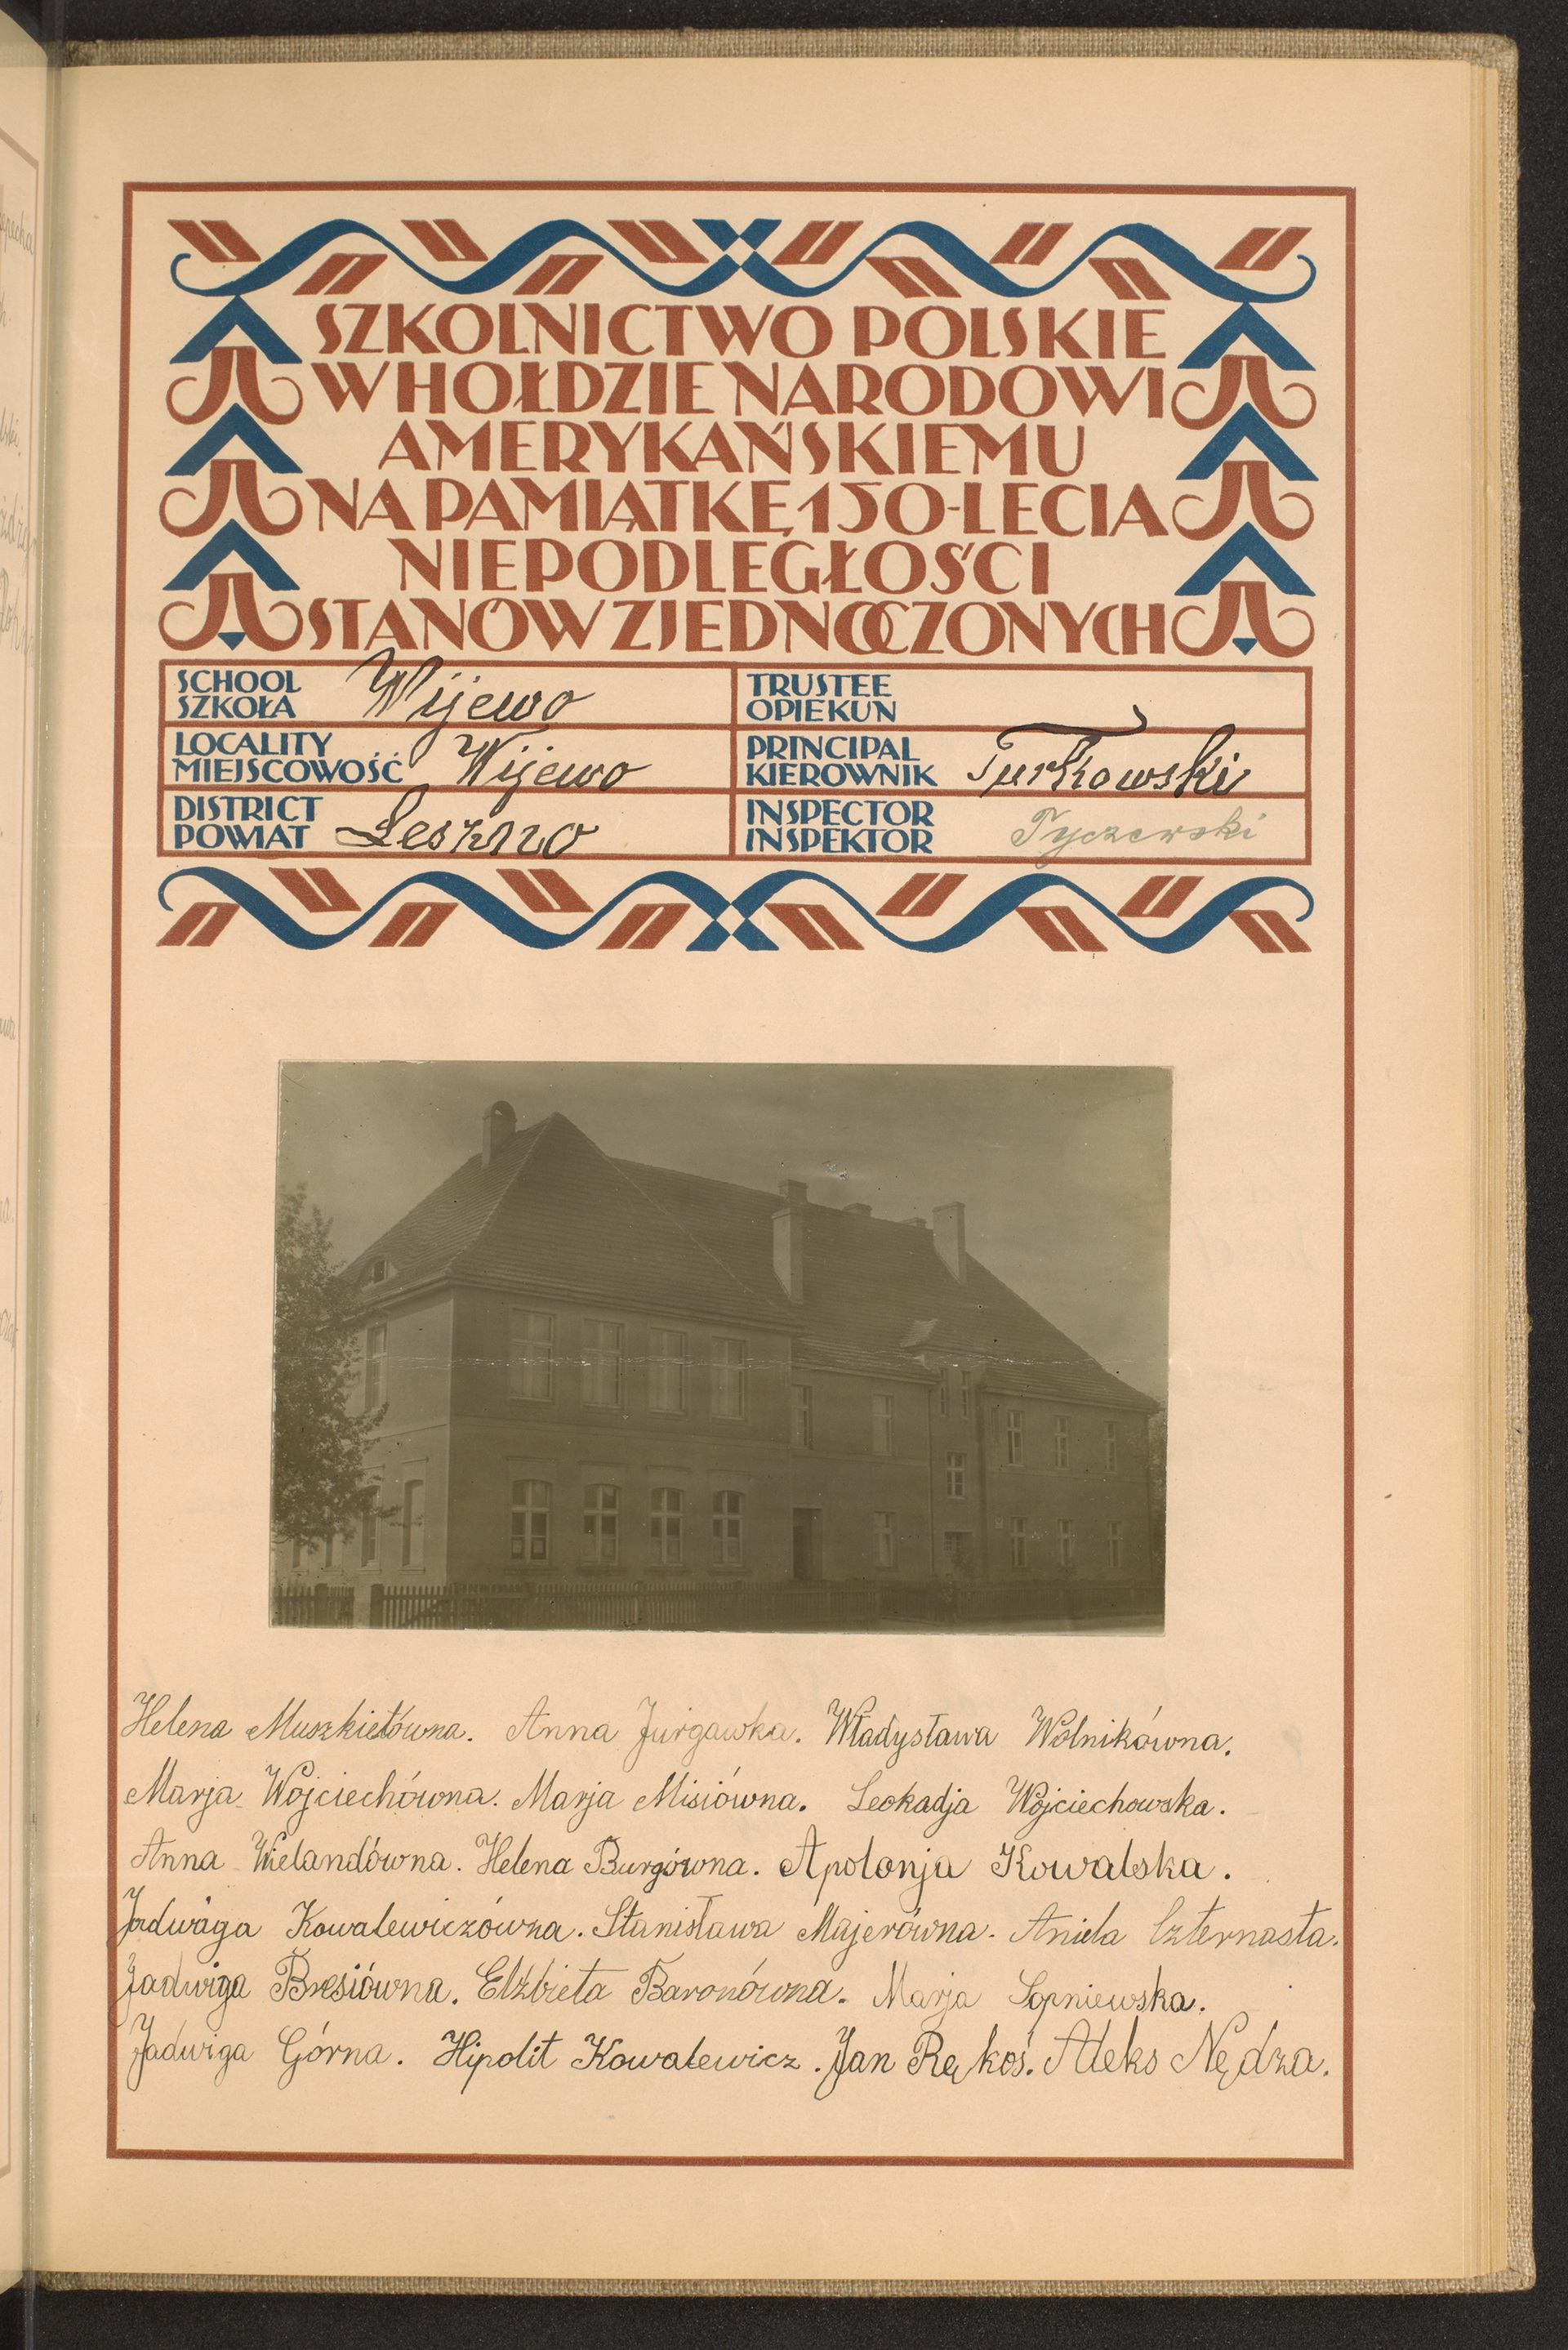 SZKOLNICTWO POLSKIE
W HOŁDZIE NARODOWI
AMERYKAŃSKIEMU
NA PAMIĄTKĘ 150-LECIA
NIEPODLEGŁOŚCI
STANÓW ZJEDNOCZONYCH
SCHOOL
SZKOŁA Wijewo
TRUSTEE
OPIEKUN
LOCALITY
MIEJSCOWOŚĆ Wijewo
PRINCIPAL
KIEROWNIK Turkowski
DISTRICT
POWIAT Leszno
INSPECTOR
INSPEKTOR Tyczewski
Helena Muszkietówna. Anna Jurgawka. Władysława Wolnikówna.
Marja Wojciechówna. Marja Misiówna. Leokadja Wojciechowska.
Anna Wielandówna. Helena Burgówna. Apolonja Kowalska.
Jadwiga Kowalewiczówna. Stanisława Majerówna. Aniela Czternasta.
Jadwiga Bresiówna. Elżbieta Baronówna. Marja Sopniewska.
Jadwiga Górna. Hipolit Kowalewicz. Jan Rękoś. Aleks Nędza.